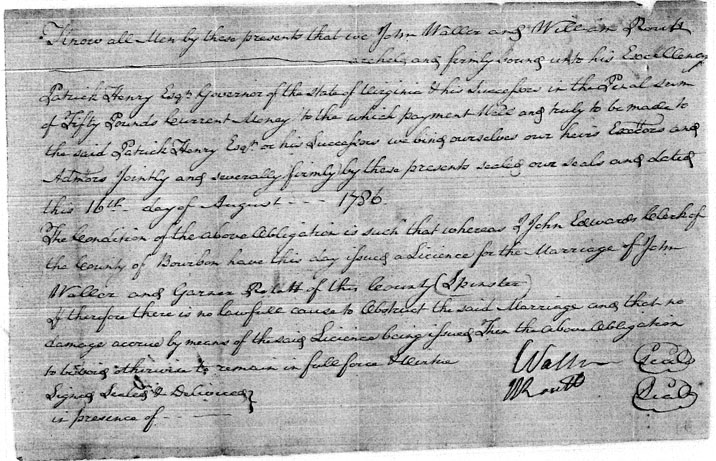 Know all Men by these presents that we John Waller and William Routt
are held and firmly bound unto his Excellency
Patrick Henry Esqr. Governor of the State of Virginia & his Successors in the Penal sum
of Fifty Pounds Current Money to the which payment Well and truly to be made to
the said Patrick Henry Esqr. or his Successors we bind ourselves our heirs Exectors and
Admtors Jointly and severally firmly by these presents sealed our seals and dated
this 16th day of August - - - 1786
The Condition of the above Obligation is such that whereas I John Edwards Clerk of
the County of Bourbon have this day issued a Licence for the Marriage of John
Waller and Garner of this County (Spinster)
If therefore there is no lawfull cause to Obstruct the said Marriage and that no
damage accrue by means of the said Licence being issued Then the above Obligation
to be void otherwise to remain in full force & Virtue
Signed Sealed & Delivered
in presence of
Waller Seal
WRoutt Seal